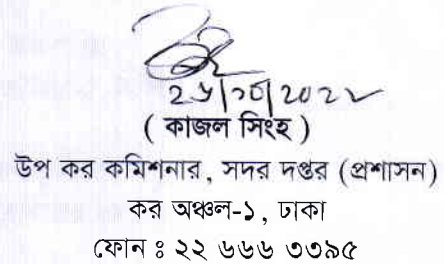 ২৬/১০/২০২২
( কাজল সিংহ )
উপ কর কমিশনার, সদর দপ্তর (প্রশাসন)
কর অঞ্চল-১, ঢাকা
ফোন ঃ ২২ ৬৬৬ ৩৩৯৫